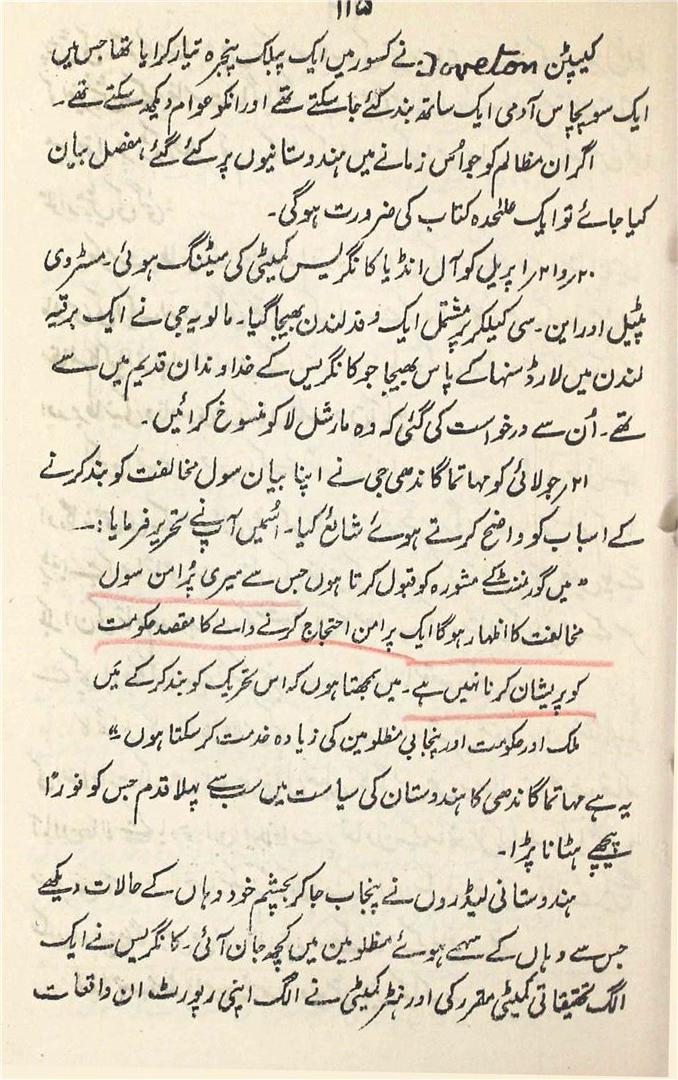 ۱۱۵
کیپٹن Doveton نے کسور میں ایک پبلک پنجرہ تیار کرایا تھا جس میں
ایک سو پچاس آدمی ایک ساتھ بند کئے جا سکتے تھے اور انکو عوام دیکھ سکتے تھے۔
اگر ان مظالم کو جو اُس زمانے میں ہندوستانیوں پر کئے گئے، مفصل بیان
کیا جائے تو ایک علٰحدہ کتاب کی ضرورت ہوگی۔
۲۰ر و ۲۱ر اپریل کو آل انڈیا کانگریس کمیٹی کی میٹنگ ہوئی۔ مسٹر وی
پٹیل اور این۔ سی کیلکر پر مشتمل ایک وفد لندن بھیجا گیا۔ مالویہ جی نے ایک برقیہ
لندن میں لارڈ سنہا کے پاس بھیجا جو کانگریس کے خداوندان قدیم میں سے
تھے۔ اُن سے درخواست کی گئی کہ وہ مارشل لا کو منسوخ کرائیں۔
۲۱ر جولائی کو مہاتما گاندھی جی نے اپنا بیان سول مخالفت کو بند کرنے
کے اسباب کو واضح کرتے ہوئے شائع کیا۔ اُسمیں آپ نے تحریر فرمایا:۔
"میں گورمنٹ کے مشورہ کو قبول کرتا ہوں جس سے میری پُرامن سول
مخالفت کا اظہار ہوگا ایک پرامن احتجاج کرنے والے کا مقصد حکومت
کو پریشان کرنا نہیں ہے۔ میں سمجھتا ہوں کہ اس تحریک کو بند کر کے میں
ملک اور حکومت اور پنجابی مظلومین کی زیادہ خدمت کر سکتا ہوں"
یہ ہے مہاتما گاندھی کا ہندوستان کی سیاست میں سب سے پہلا قدم جس کو فوراً
پیچھے ہٹانا پڑا۔
ہندوستانی لیڈروں نے پنجاب جا کر بچشم خود وہاں کے حالات دیکھے
جس سے وہاں کے سہمے ہوئے مظلومین میں کچھ جان آئی۔ کانگریس نے ایک
الگ تحقیقاتی کمیٹی مقرر کی اور ہنٹر کمیٹی نے الگ اپنی رپورٹ ان واقعات